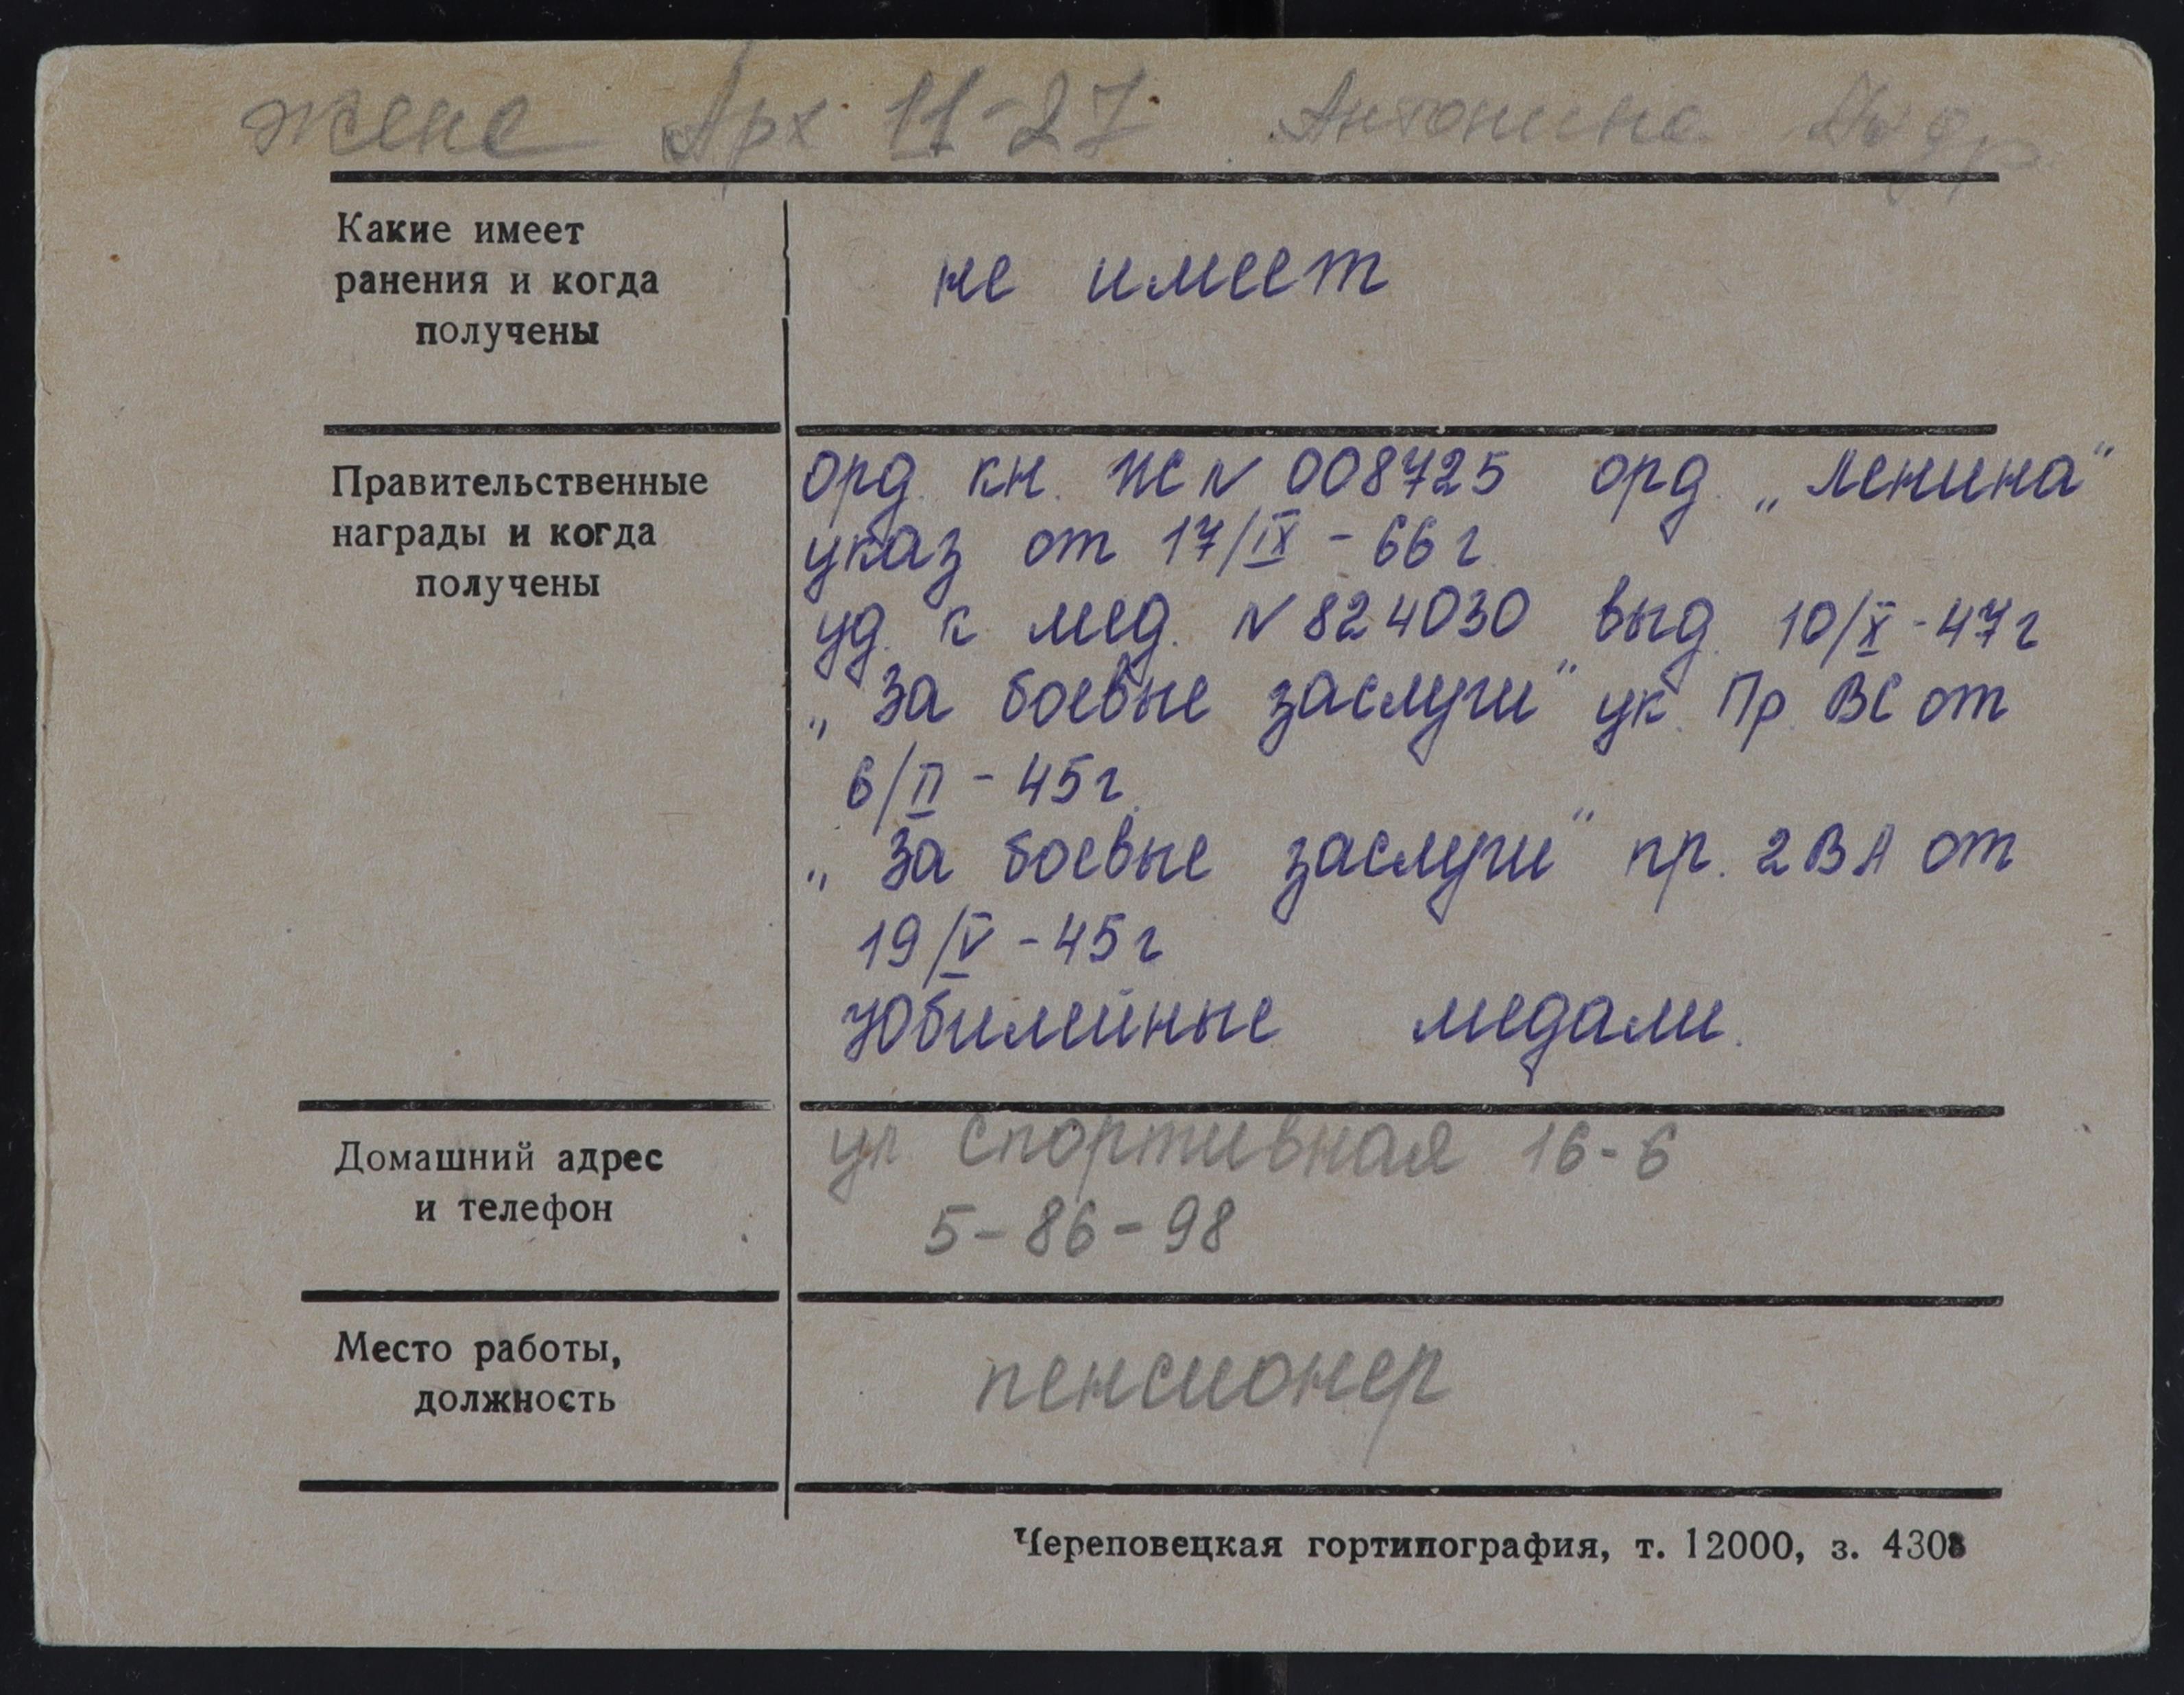 жене Арх 11-27 Антонина
Какие имеет
ранения и когда
получены
не имеет
Правительственные
награды и когда
получены
орд. кн. ЖС № 008725 орд. „Ленина“
указ от 17/IX - 66 г.
уд. к мед. № 824030 выд. 10/X - 47 г
„За боевые заслуги“ ук. Пр. ВС от
6/II - 45 г.
„За боевые заслуги“ пр. 2 ВА от
19/V - 45 г
юбилейные медали.
Домашний адрес
и телефон
ул Спортивная 16-6
5-86-98
Место работы,
должность
пенсионер
Череповецкая гортипография, т. 12000, з. 4308